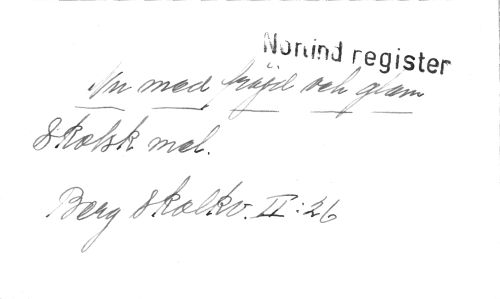 Norlind register
Nu med fröjd och glam
Skotsk mel.
Berg Skolkv. II:26